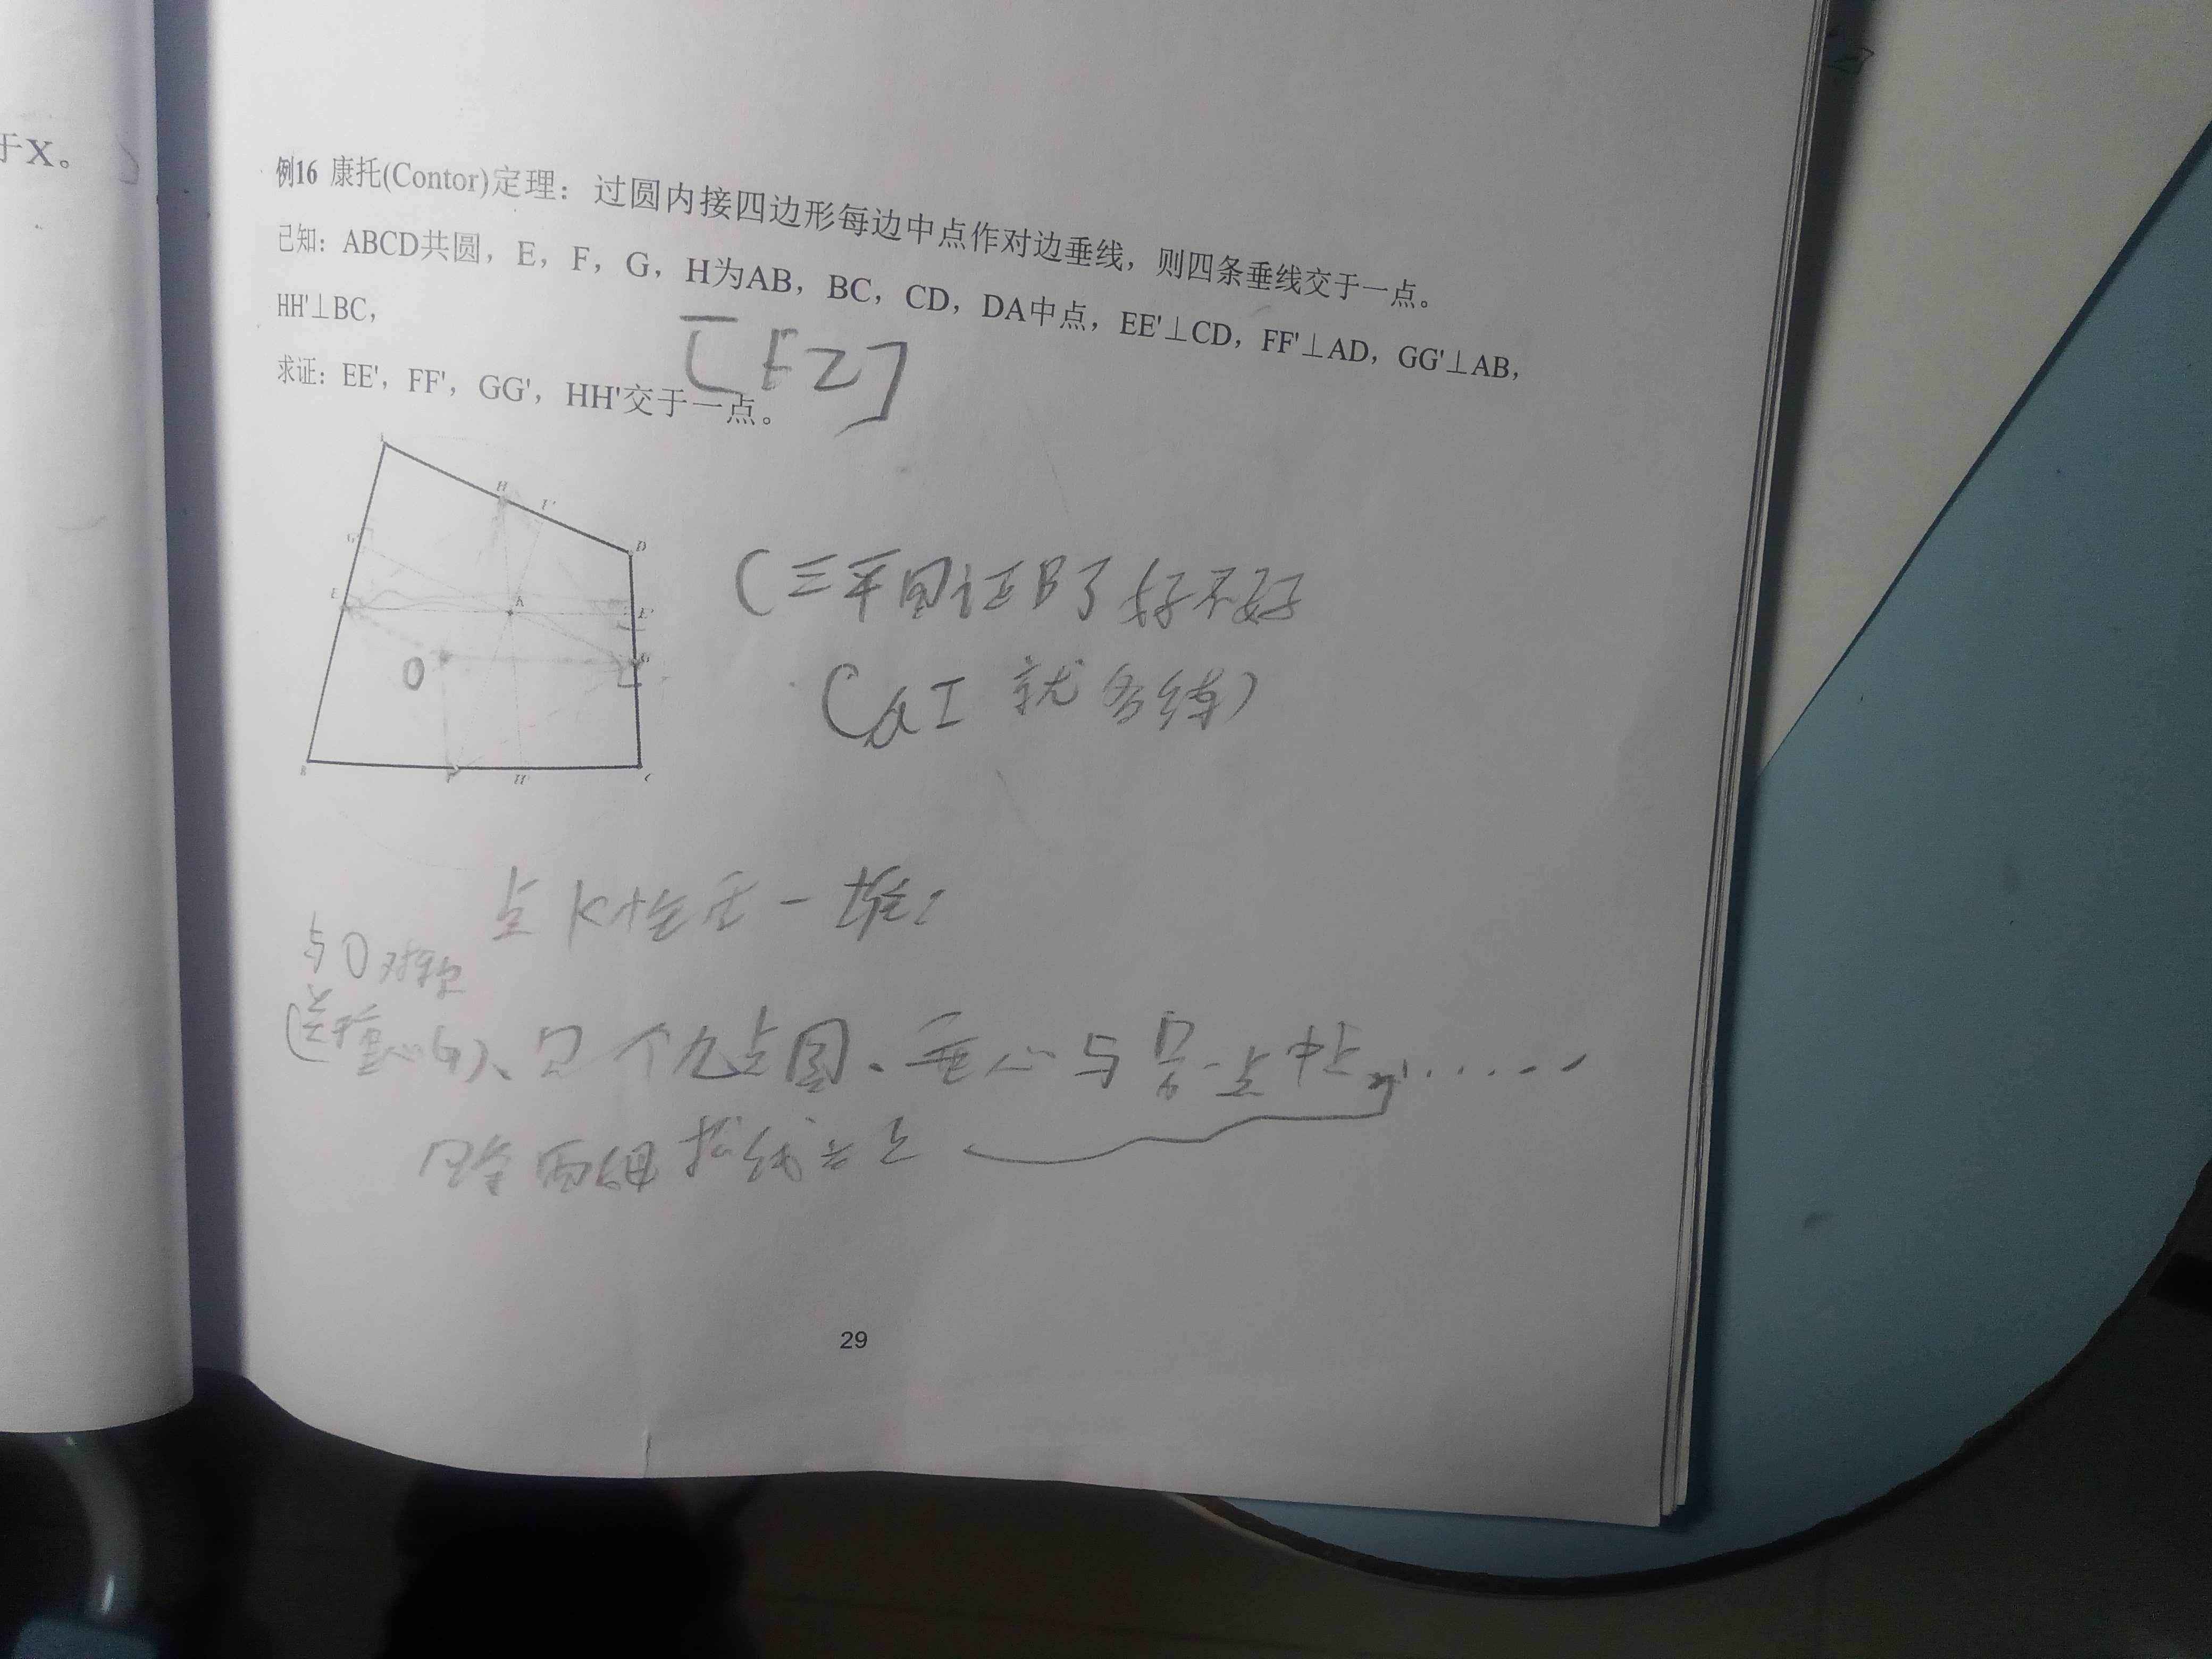 于X。
例16 康托(Contor)定理：过圆内接四边形每边中点作对边垂线，则四条垂线交于一点。
已知：ABCD共圆，E，F，G，H为AB，BC，CD，DA中点，EE'⊥CD，FF'⊥AD，GG'⊥AB，
HH'⊥BC，
求证：EE'，FF'，GG'，HH'交于一点。
[EZ]
H
F'
D
G'
E
K
E'
O
G
B
F
H'
C
好不好
就
点K性质一堆：
与O对称
心(G)、四个九点圆、垂心与另一点中点......
两组
29